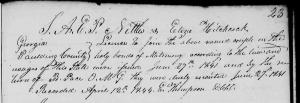 23
J. A. E. P. Nettles & Eelizie Hitchcock
Georgia License to Join the above named couple in the
Paulding County holy bonds of Matrimony according to the laws and
usages of this State were issued June 27th 1841 and by the re-
turn of B. Pace O.M.G they were duly executed June 27. 1841
Recorded April 18th 1844. E. Thompson Clk